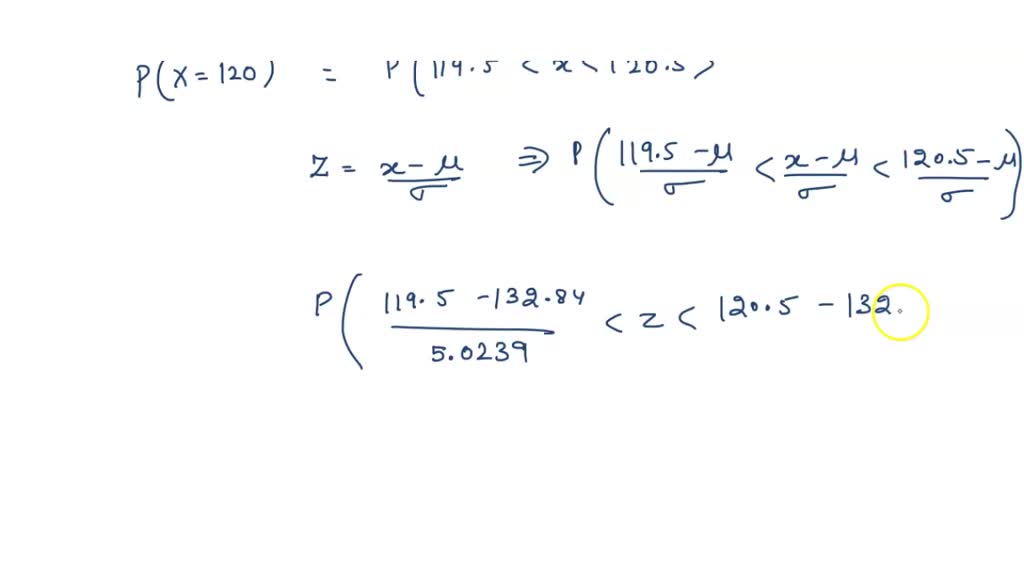 P(X = 120) = P(119.5 < x < 120.5)
Z = x - μ / σ ⇒ P(119.5 - μ / σ < x - μ / σ < 120.5 - μ / σ)
P(119.5 - 132.84 / 5.0239 < z < 120.5 - 132.